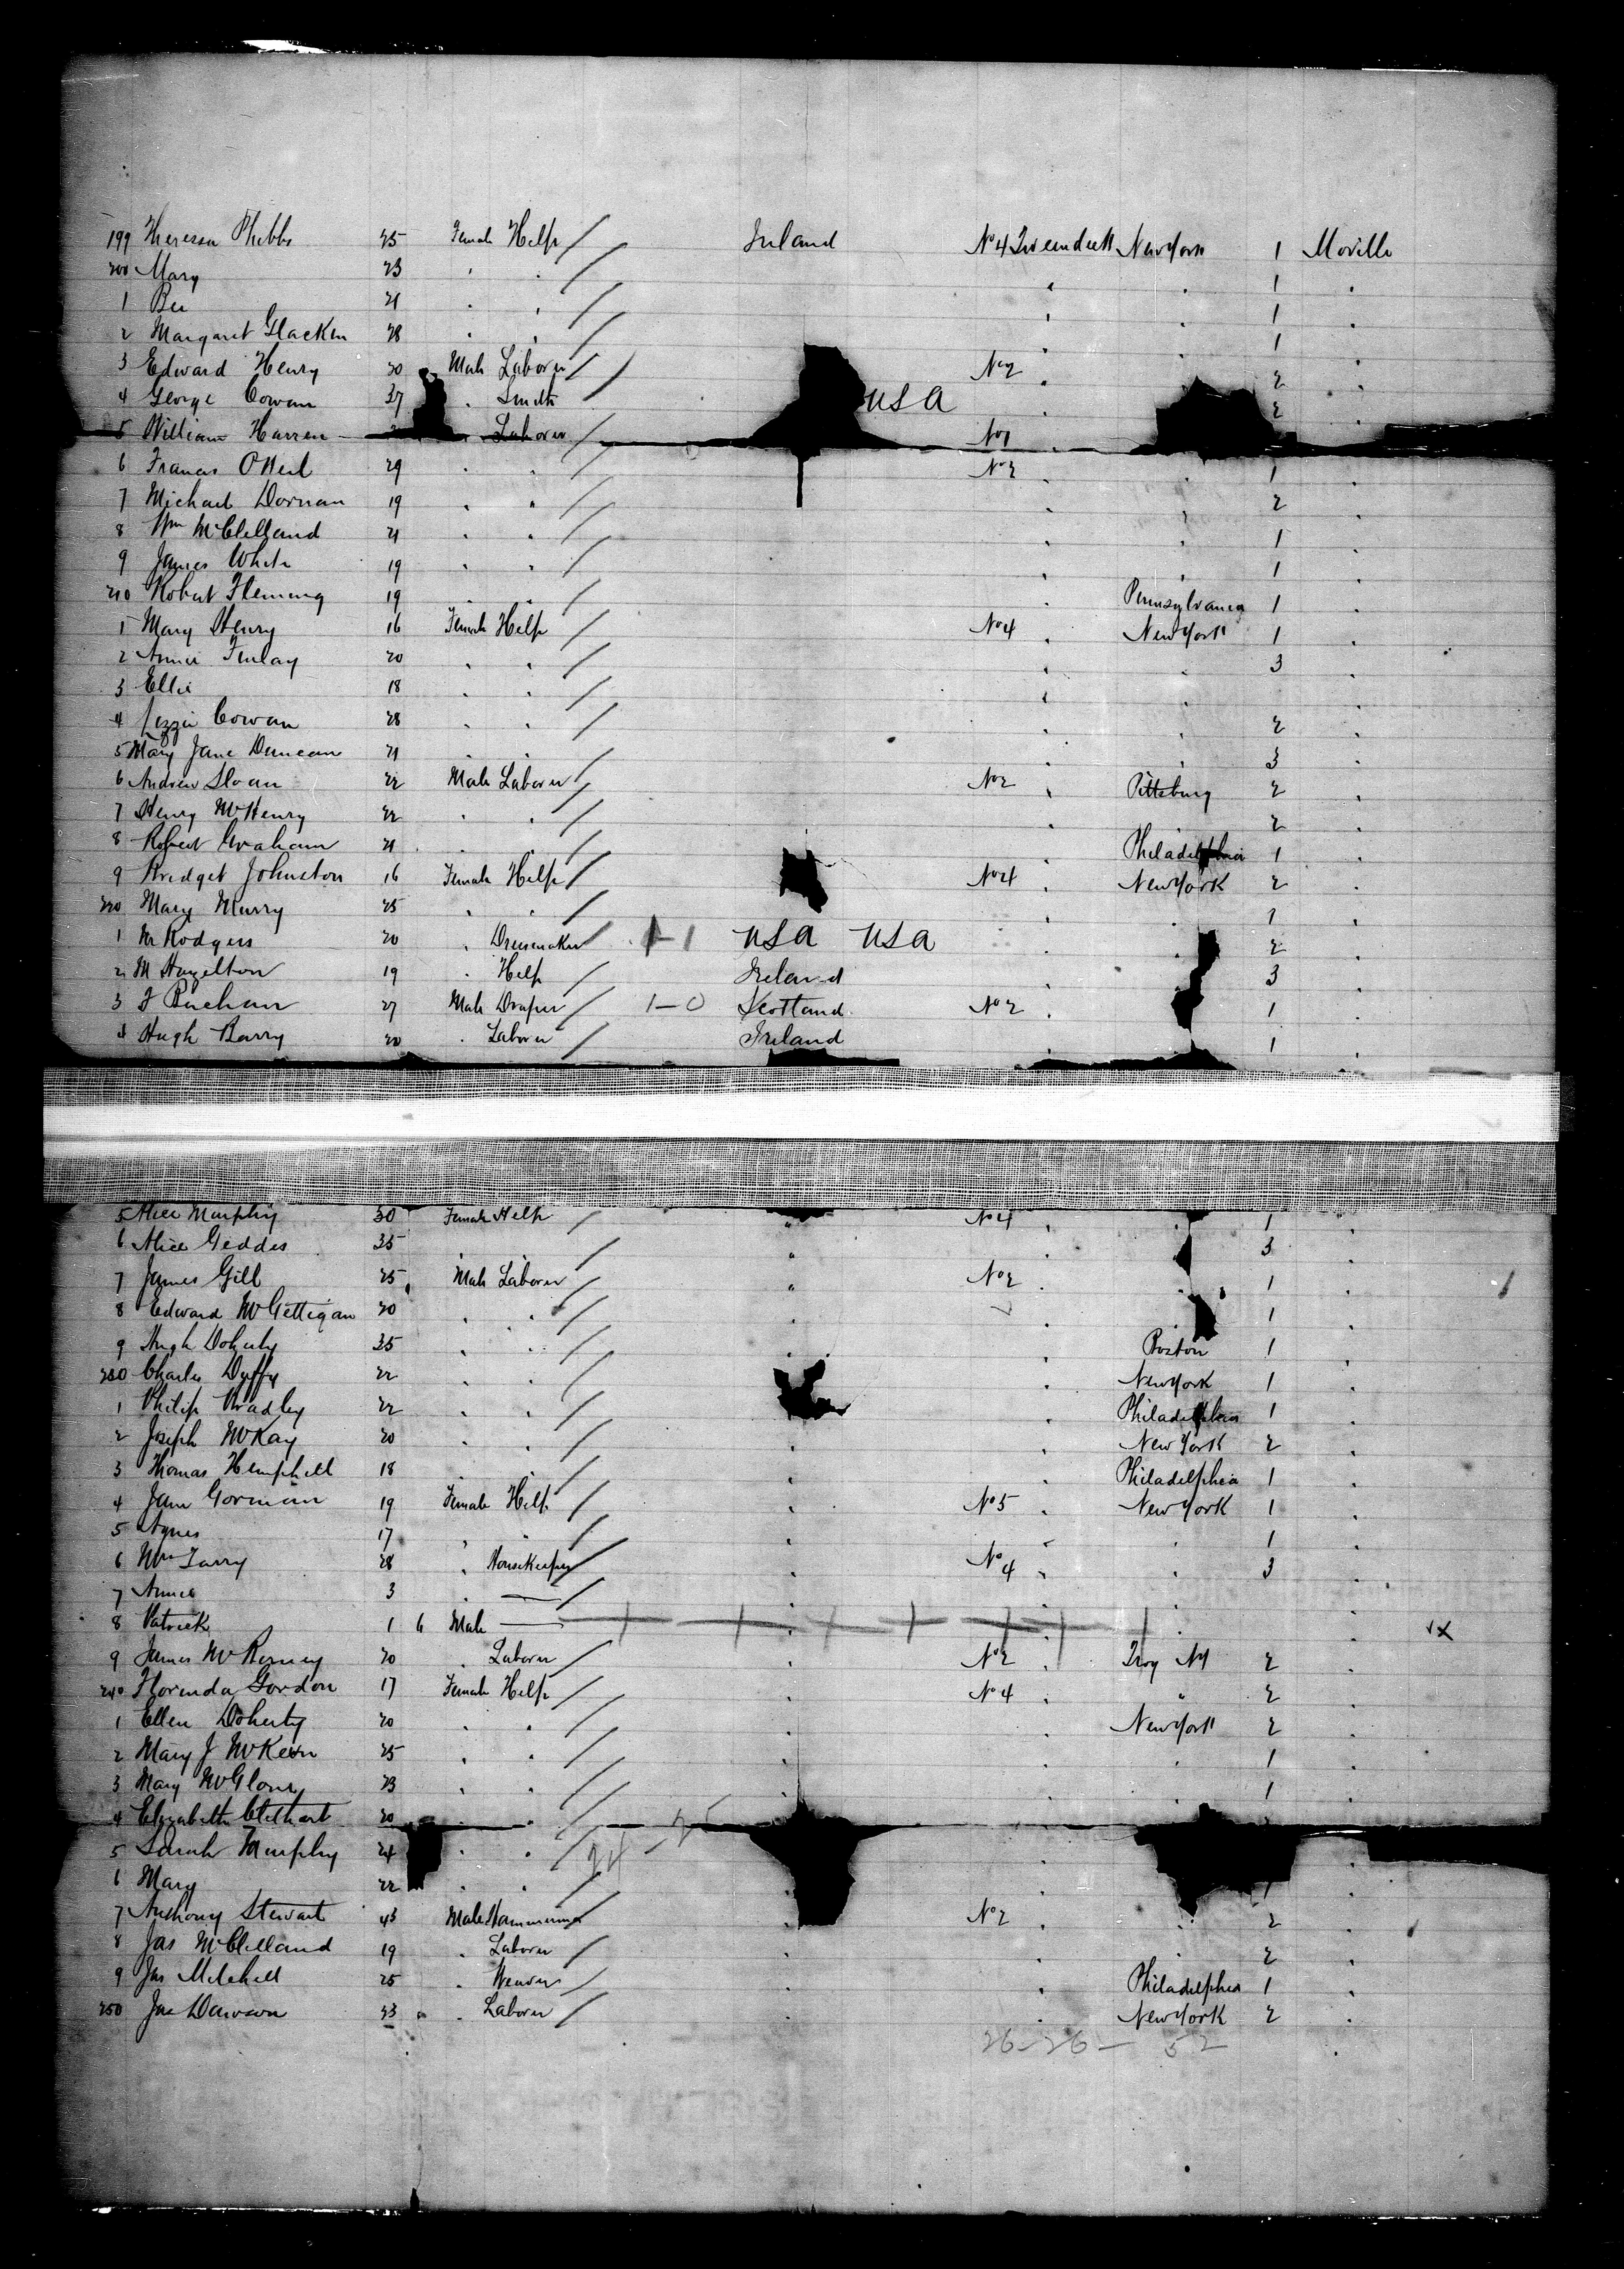 199 Theresa Phibbs 25 Female Help Ireland No 4 New York 1 Moville
200 Mary 23 " " " " 1 "
1 Bee 21 " " " " 1 "
2 Margaret Glacken 28 " " " " 1 "
3 Edward Henry 30 Male Laborer No 2 " 2 "
4 George Cowan 37 " Smith USA " 2 "
5 William Harren Laborer No 1
6 Francis O'Neil 29 " " No 2 " " 1 "
7 Michael Dornan 19 " " " " 2 "
8 Wm McClelland 21 " " " " 1 "
9 James White 19 " " " " 1 "
210 Robert Fleming 19 " " " Pennsylvania 1 "
1 Mary Henry 16 Female Help No 4 " New York 1 "
2 Annie Finlay 20 " " " " 3 "
3 Ellie 18 " " " " "
4 Lizzie Cowan 28 " " " " 2 "
5 Mary Jane Duncan 21 " " " " 3 "
6 Andrew Sloan 22 Male Laborer No 2 " Pittsburg 2 "
7 Henry McHenry 22 " " " " 2 "
8 Robert Graham 21 " " " Philadelphia 1 "
9 Bridget Johnston 16 Female Help No 4 " New York 2 "
220 Mary Murry 25 " " " " 1 "
1 M Rodgers 20 " Dressmaker 1-1 USA USA " " 2 "
2 M Hazelton 19 " Help Ireland " 3 "
3 J Buchan 27 Male Draper 1-0 Scotland No 2 " 1 "
4 Hugh Barry 20 " Laborer Ireland " " 1 "
5 Alice Murphy 30 Female Help " No 4 " " 1 "
6 Alice Geddes 35 " " " 3 "
7 James Gill 25 Male Laborer " No 2 " 1 "
8 Edward McGettigan 20 " " " 1 "
9 Hugh Doherty 35 " " " " Boston 1 "
230 Charles Duffy 22 " " " New York 1 "
1 Philip Bradley 22 " " " Philadelphia 1 "
2 Joseph McKay 20 " " " " New York 2 "
3 Thomas Hemphill 18 " " " " Philadelphia 1 "
4 Jane Gorman 19 Female Help " No 5 " New York 1 "
5 Agnes 17 " " " " " 1 "
6 Mrs 28 " Housekeeper " No 4 " " 3 "
7 Annie 3 " — " " " "
8 Patrick 1 6 Male — " " " x
9 James 20 " Laborer " No 2 " Troy NY 2 "
240 Florinda Gordon 17 Female Help " No 4 " " 2 "
1 Ellen Doherty 20 " " " " New York 2 "
2 Mary J McKeon 25 " " " " " 1 "
3 Mary McGlone 23 " " " " " 1 "
4 Elizabeth 20 " "
24 - 25
5 Sarah Murphy 24 " " " "
6 Mary 22 " " " " 1 "
7 Anthony Stewart 43 Male Hammerman No 2 " " 2 "
8 Jas McClelland 19 " Laborer " " " 2 "
9 Jas Mitchell 25 " Weaver " " Philadelphia 1 "
250 Jas Dawson 23 " Laborer " " New York 2 "
26-26- 52